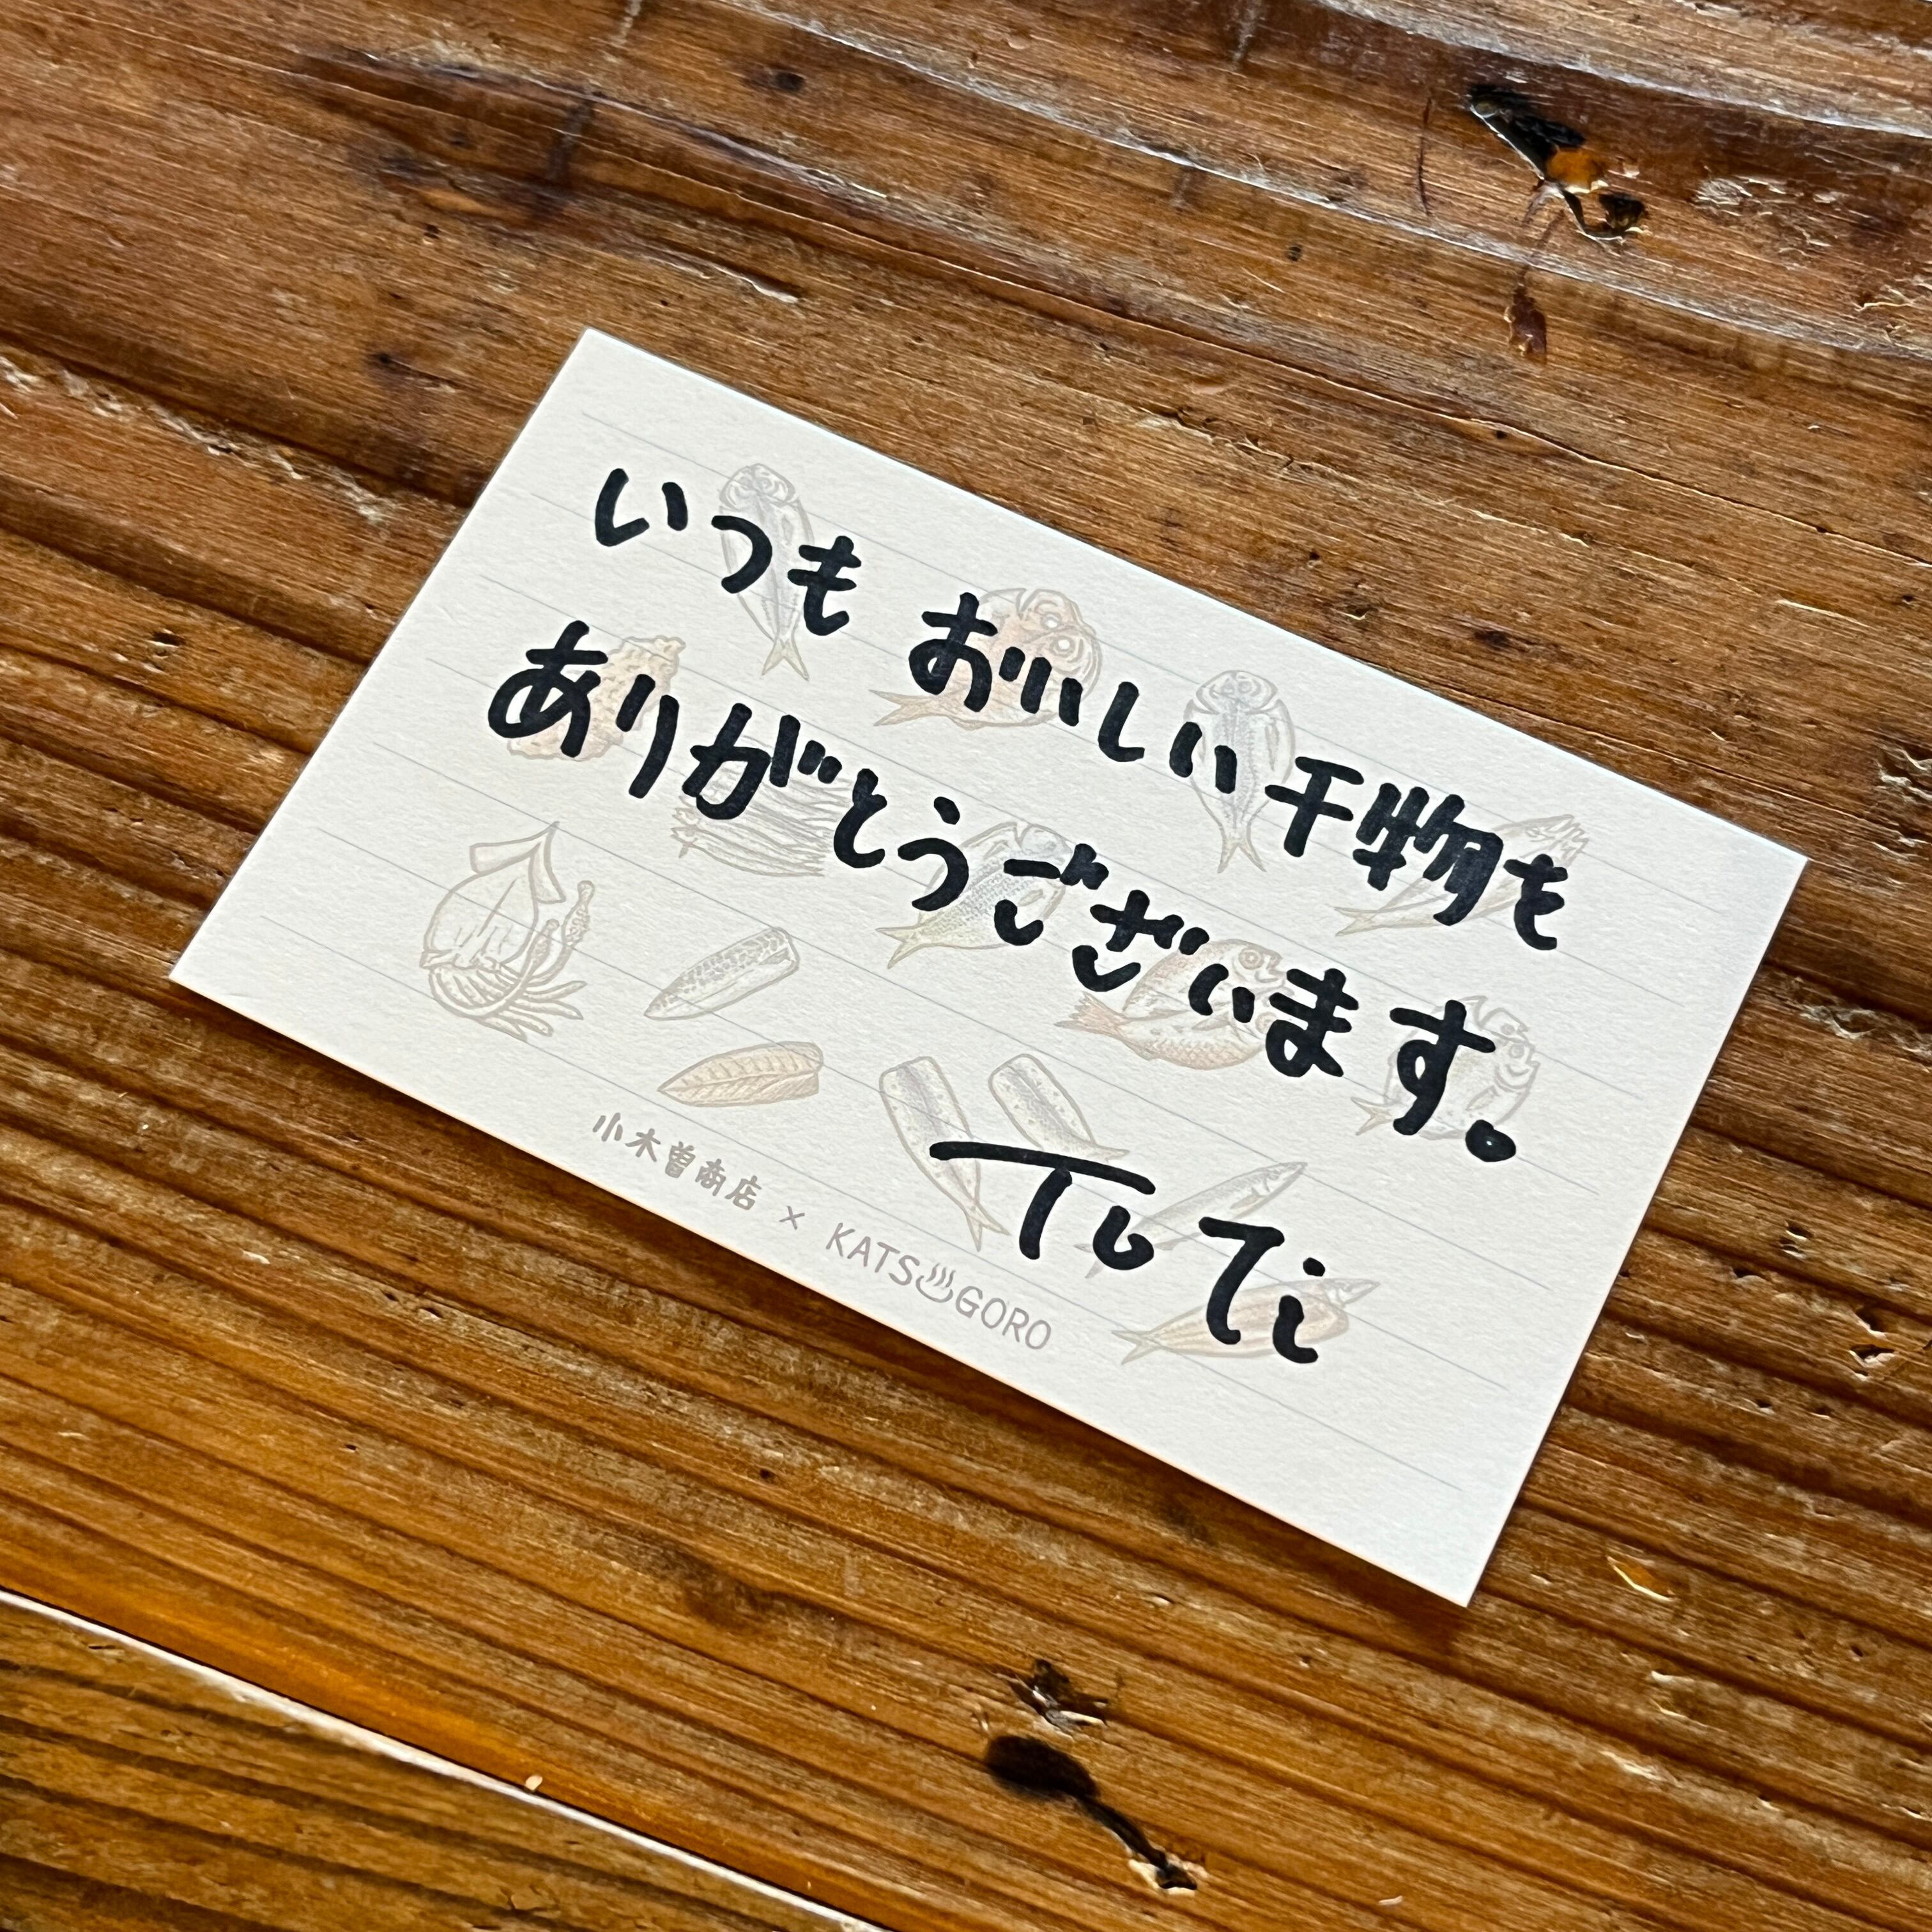 いつも おいしい干物を
ありがとうございます。
TuTi
小木曽商店 × KATS♨GORO